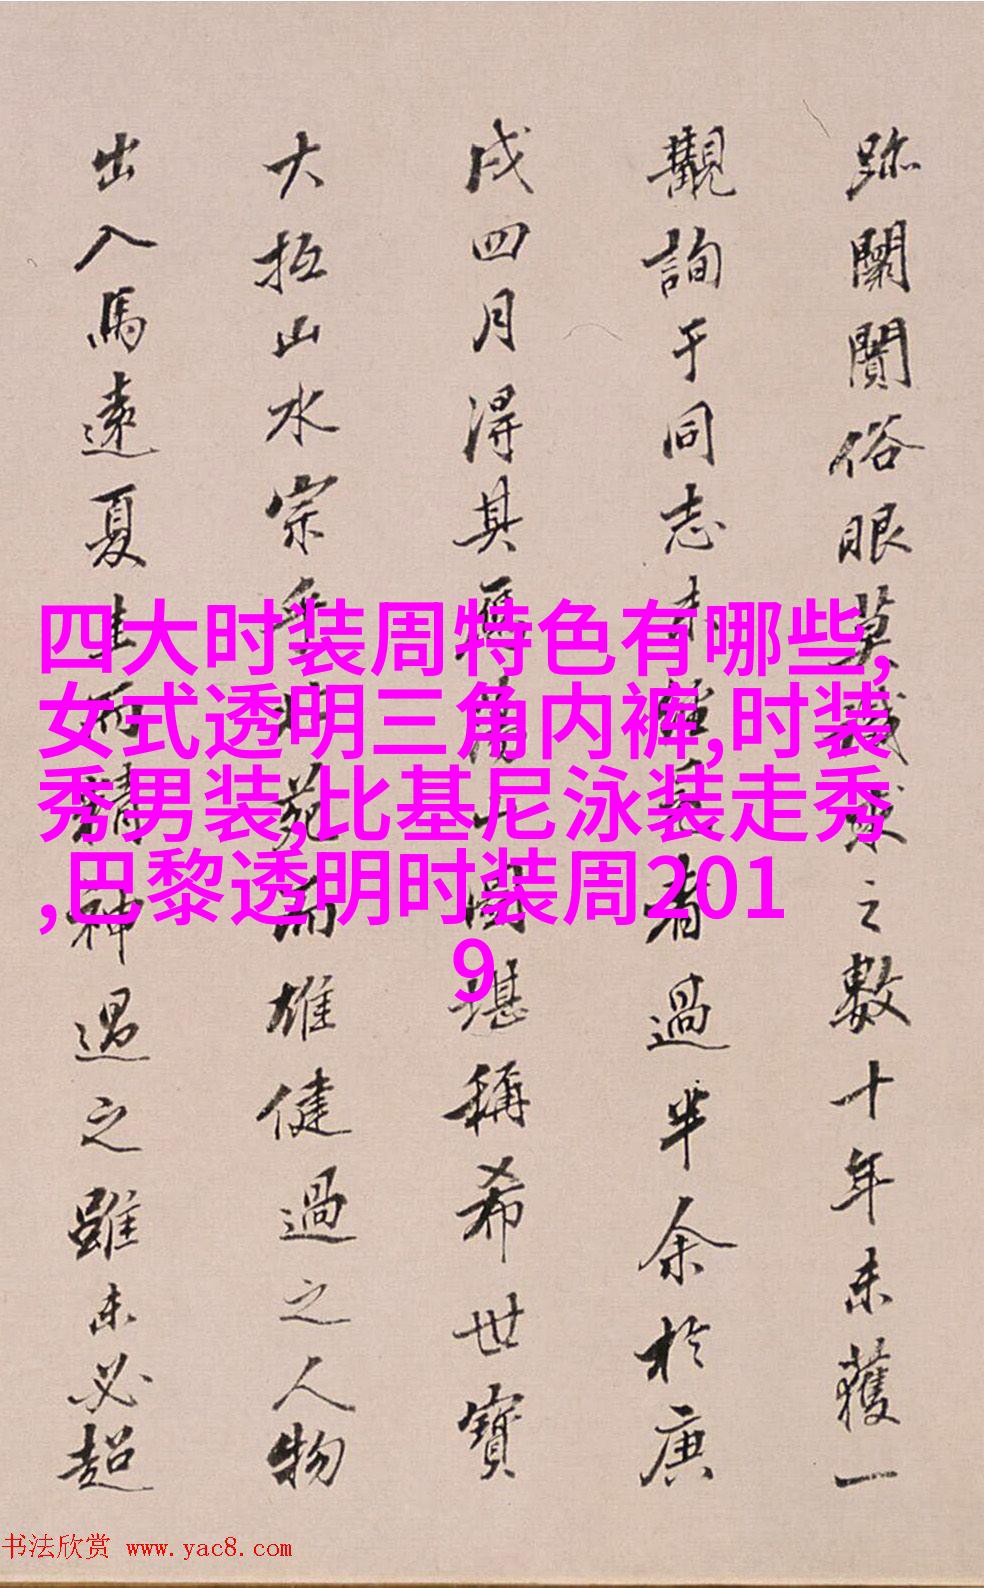 跡闤闠俗眼莫識求之數十年未獲一
觀詢于同志未嘗長者過半余於庚
戌四月得其馬山圖堪稱希世寶
大抵山水宗乎北苑而雄健過之人物
出入馬遠夏圭而精神過之雖未必超
四大时装周特色有哪些,
女式透明三角内裤,时装
秀男装,比基尼泳装走秀
,巴黎透明时装周201
9
书法欣赏 www.yac8.com